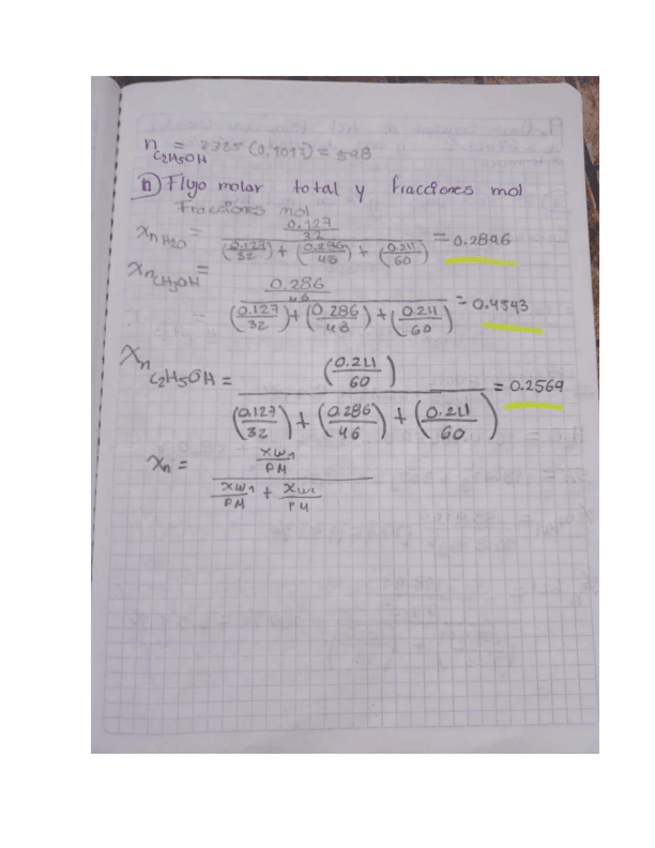 n C2H5OH = 2325 (0.1017) = 598
h) Flujo molar total y fracciones mol
Fracciones mol
Xn H2O = (0.127/32) / ((0.127/32) + (0.286/48) + (0.211/60)) = 0.2896
Xn CH3OH = (0.286/46) / ((0.127/32) + (0.286/48) + (0.211/60)) = 0.4543
=
Xn C2H5OH = (0.211/60) / ((0.127/32) + (0.286/46) + (0.211/60)) = 0.2569
Xn = (xw1/PM) / (xw1/PM + xw1/PM)